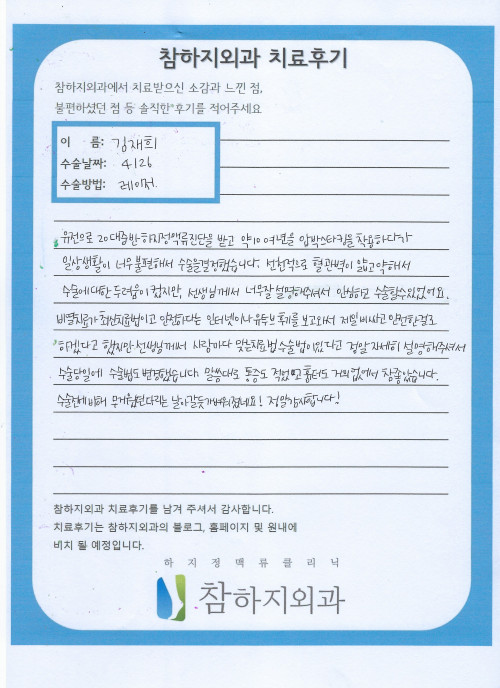 참하지외과 치료후기
참하지외과에서 치료받으신 소감과 느낀 점,
불편하셨던 점 등 솔직한 후기를 적어주세요
이 름: 김재희
수술날짜: 4/26
수술방법: 레이저
유전으로 20대중반 하지정맥류진단을 받고 약10여년을 압박스타킹을 착용하다가
일상생활이 너무불편해서 수술을결정했습니다. 선천적으로 혈관벽이 얇고약해서
수술에대한 두려움이 컸지만, 선생님께서 너무잘설명해주셔서 안심하고 수술할수있었어요.
비열치료가 최신치료법이고 안전하다는 인터넷이나 유튜브 후기를 보고와서 제일비싸고 안전한걸로
하겠다고 했지만 선생님께서 사람마다 맞는치료법수술법이있다고 정말 자세히 설명해주셔서
수술당일에 수술법도 변경했습니다. 말씀대로 통증도 적었고 흉터도 거의없어서 참좋았습니다.
수술전에비해 무거웠던다리는 날아갈듯가벼워졌네요! 정말감사합니다!
참하지외과 치료후기를 남겨 주셔서 감사합니다.
치료후기는 참하지외과의 블로그, 홈페이지 및 원내에
비치 될 예정입니다.
하지정맥류클리닉
참하지외과